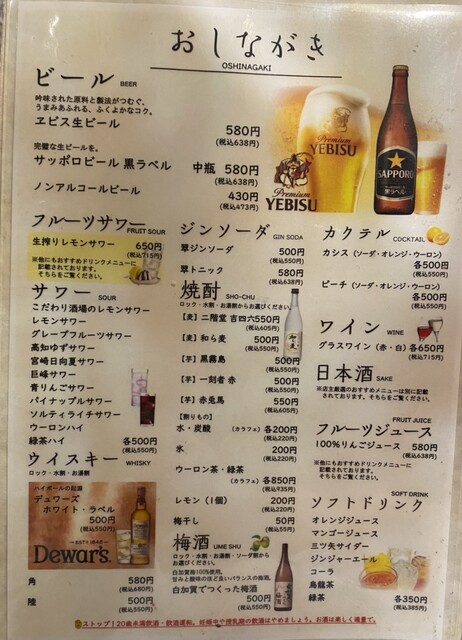 おしながき
OSHINAGAKI
ビール BEER
吟味された原料と製法がつむぐ、
うまみあふれる、ふくよかなコク。
ヱビス生ビール
580円
(税込638円)
完璧な生ビールを。
サッポロビール 黒ラベル 中瓶 580円
(税込638円)
ノンアルコールビール 430円
(税込473円)
Premium
YEBISU
Premium
YEBISU
SAPPORO
フルーツサワー FRUIT SOUR
生搾りレモンサワー 650円
(税込715円)
※他にもおすすめドリンクメニューに
記載されております。
そちらをご覧ください。
サワー SOUR
こだわり酒場のレモンサワー
レモンサワー
グレープフルーツサワー
高知ゆずサワー
宮崎日向夏サワー
巨峰サワー
青りんごサワー
パイナップルサワー
ソルティライチサワー
ウーロンハイ
緑茶ハイ 各500円
(税込550円)
ウイスキー WHISKY
ロック・水割・お湯割
ハイボールの起源
デュワーズ
ホワイト・ラベル
500円
(税込550円)
ESTD 1846
Dewar's
角 580円
(税込680円)
陸 500円
(税込550円)
ジンソーダ GIN SODA
翠ジンソーダ 500円
(税込550円)
翠トニック 580円
(税込638円)
焼酎 SHO-CHU
ロック・水割・お湯割・ソーダ割からお選びください。
【麦】二階堂 吉四六 550円
(税込605円)
【麦】和ら麦 500円
(税込550円)
【芋】黒霧島 500円
(税込550円)
【芋】一刻者 赤 500円
(税込550円)
【芋】赤兎馬 550円
(税込605円)
【割りもの】
水・炭酸 (カラフェ) 各200円
(税込220円)
氷 200円
(税込220円)
ウーロン茶・緑茶
(カラフェ) 各850円
(税込935円)
レモン(1個) 200円
(税込220円)
梅干し 50円
(税込55円)
梅酒 UME SHU
ロック・水割・お湯割・ソーダ割から
お選びください。
白加賀梅100%使用。
甘みと酸味のほど良いバランスの梅酒。
白加賀でつくった梅酒
500円
(税込550円)
カクテル COCKTAIL
カシス(ソーダ・オレンジ・ウーロン)
各500円
(税込550円)
ピーチ(ソーダ・オレンジ・ウーロン)
各500円
(税込550円)
ワイン WINE
グラスワイン(赤・白) 各650円
(税込715円)
日本酒 SAKE
※店主厳選のおすすめメニューは別に記載
されております。そちらをご覧ください。
フルーツジュース FRUIT JUICE
100%りんごジュース 580円
(税込638円)
※他にもおすすめドリンクメニューに
記載されております。
そちらをご覧ください。
ソフトドリンク SOFT DRINK
オレンジジュース
マンゴージュース
三ツ矢サイダー
ジンジャーエール
コーラ
烏龍茶
緑茶 各350円
(税込385円)
ストップ!20歳未満飲酒・飲酒運転。妊娠中や授乳期の飲酒はやめましょう。お酒は楽しく適量で。